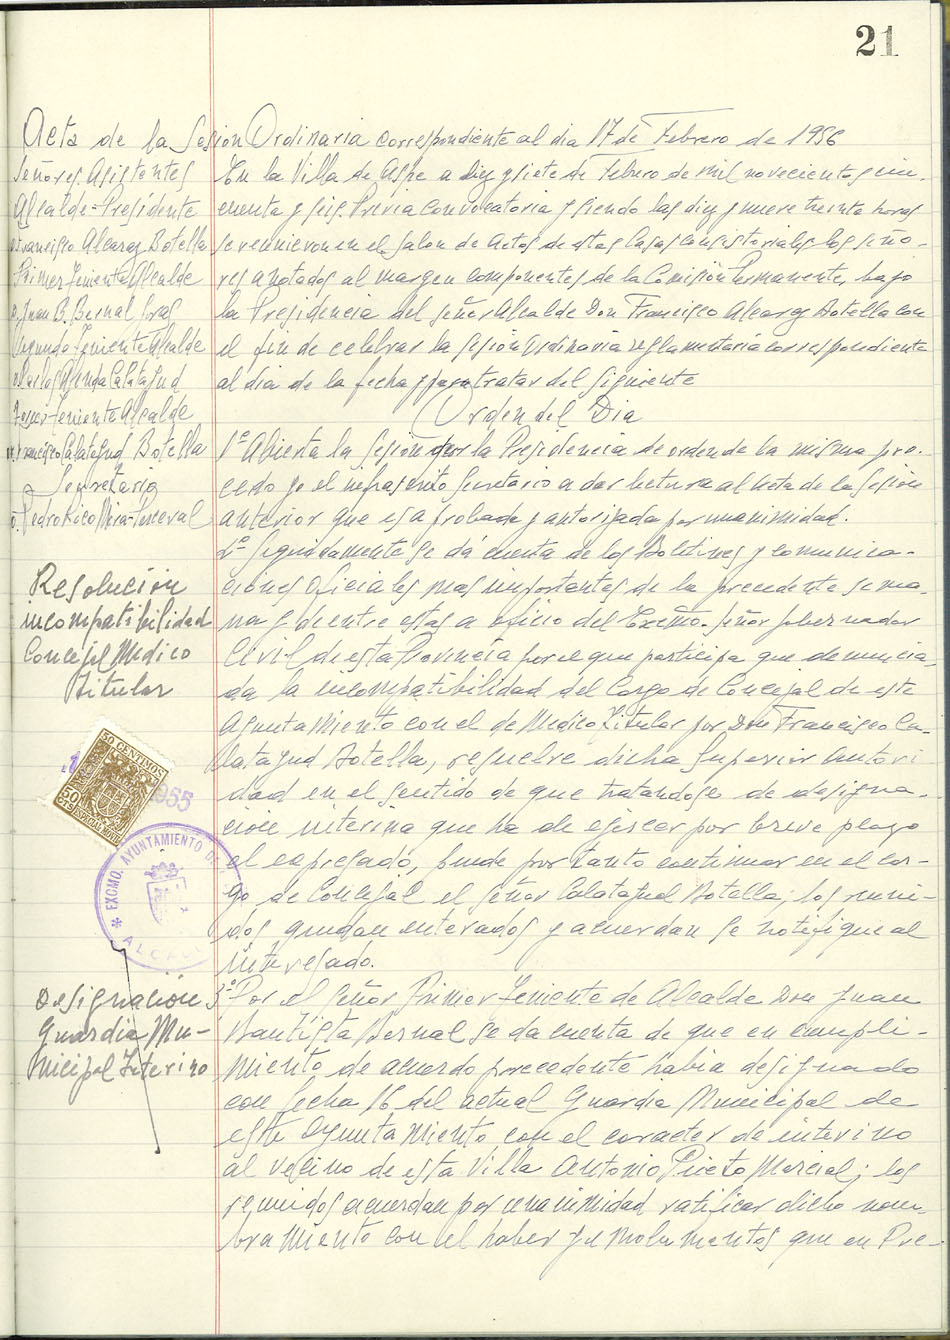 21
Acta de la Sesion Ordinaria correspondiente al dia 17 de Febrero de 1956
Señores Asistentes
Alcalde-Presidente
D. Francisco Alcaraz Botella
Primer Teniente Alcalde
D. Juan B. Bernal
Segundo Teniente Alcalde
Calatayud
Tercer Teniente Alcalde
D. Francisco Calatayud Botella
Secretario
D. Pedro Rico Mira-Perceval
En la Villa de Aspe a diez y siete de Febrero de mil novecientos cin-
cuenta y seis. Previa Convocatoria y siendo las diez y nueve treinta horas
se reunieron en el Salon de Actos de estas Casas Consistoriales los seño-
res anotados al margen componentes de la Comisión Permanente, bajo
la Presidencia del señor Alcalde Don Francisco Alcaraz Botella con
el fin de celebrar la Sesión Ordinaria reglamentaria correspondiente
al dia de la fecha y para tratar del siguiente
Orden del Dia
1º Abierta la Sesión por la Presidencia de orden de la misma pro-
cedo yo el infrascrito Secretario a dar lectura al acta de la Sesión
anterior que es aprobada y autorizada por unanimidad.
2º Seguidamente se dá cuenta de los Boletines y comunica-
ciones oficiales mas importantes de la precedente sema-
na y de entre estas a oficio del Excmo. Señor Gobernador
Civil de esta Provincia por el que participa que denuncia-
da la incompatibilidad del Cargo de Concejal de este
Ayuntamiento con el de Medico Titular por Don Francisco Ca-
latayud Botella, resuelve dicha Superior Autori
dad en el sentido de que tratandose de designa-
cion interina que ha de ejercer por breve plazo
el expresado, puede por tanto continuar en el car-
go de Concejal el señor Calatayud Botella; los reuni-
dos quedan enterados y acuerdan se notifique al
interesado.
Resolución
incompatibilidad
Concejal Medico
Titular
50 CENTIMOS
50
CTS
ESPECIAL MOVIL
1955
EXCMO. AYUNTAMIENTO DE
Designación
Guardia Mu-
nicipal Interino
3º Por el Señor Primer Teniente de Alcalde Don Juan
Bautista Bernal se da cuenta de que en cumpli-
miento de acuerdo precedente habia designado
con fecha 16 del actual Guardia Municipal de
este Ayuntamiento con el caracter de interino
al vecino de esta Villa Antonio Prieto Marcial; los
reunidos acuerdan por unanimidad ratificar dicho nom-
bramiento con el haber y emolumentos que en Pre-